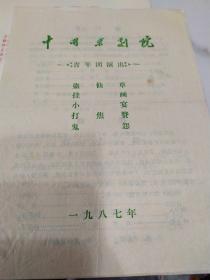 中国京剧院
青年团演出
盗仙草
挂画
小宴
打焦赞
鬼怨
一九八七年